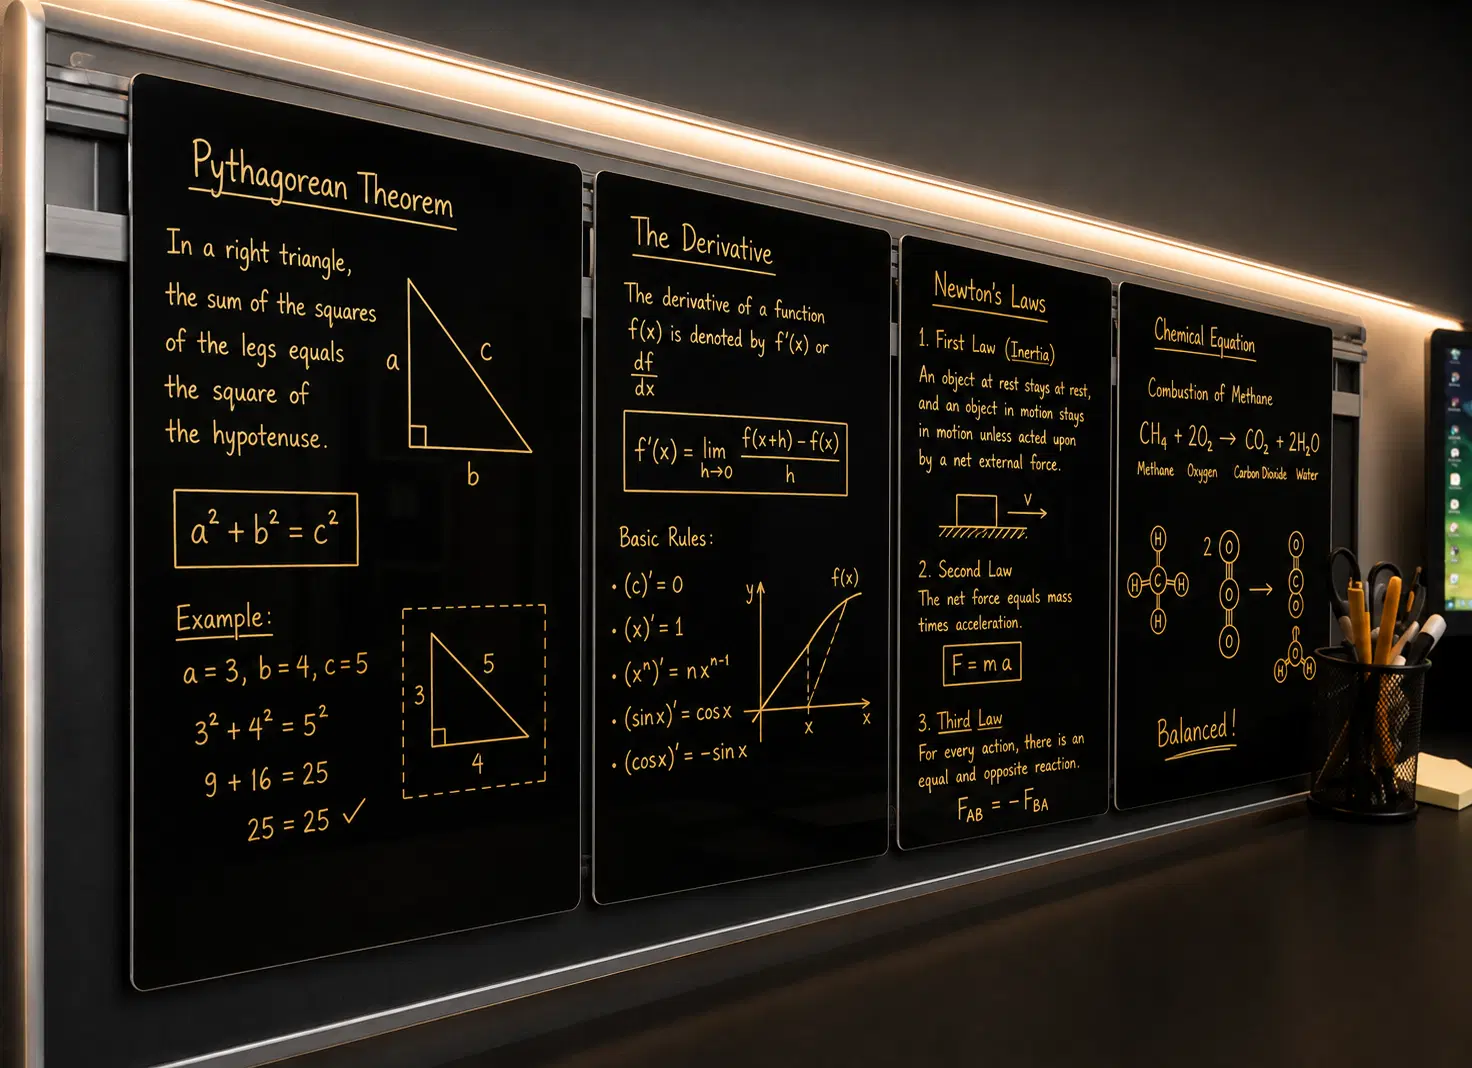 Pythagorean Theorem
In a right triangle,
the sum of the squares
of the legs equals
the square of
the hypotenuse.
a
c
b
a² + b² = c²
Example:
a = 3, b = 4, c = 5
3² + 4² = 5²
9 + 16 = 25
25 = 25 ✓
3
5
4
The Derivative
The derivative of a function
f(x) is denoted by f'(x) or
df
dx
f'(x) = lim h→0 f(x+h) − f(x) / h
Basic Rules:
• (c)' = 0
• (x)' = 1
• (xⁿ)' = nxⁿ⁻¹
• (sinx)' = cosx
• (cosx)' = −sin x
y
f(x)
x
x
Newton's Laws
1. First Law (Inertia)
An object at rest stays at rest,
and an object in motion stays
in motion unless acted upon
by a net external force.
v
2. Second Law
The net force equals mass
times acceleration.
F = m a
3. Third Law
For every action, there is an
equal and opposite reaction.
F_AB = − F_BA
Chemical Equation
Combustion of Methane
CH₄ + 2O₂ → CO₂ + 2H₂O
Methane Oxygen Carbon Dioxide Water
H
H C H
H
2 O
O
O
→
O
C
O
O
H H
Balanced!